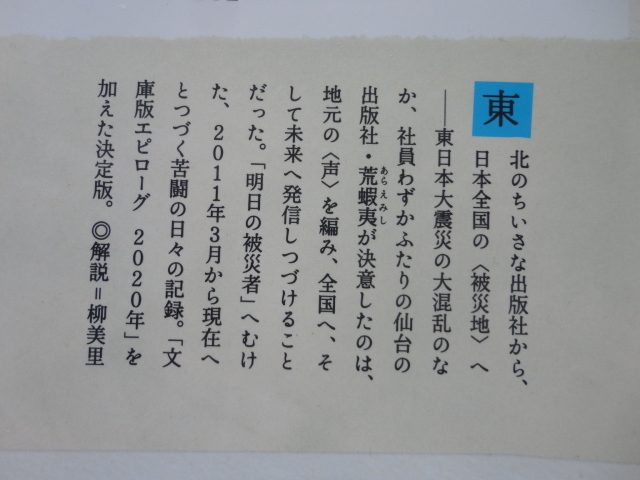 東北のちいさな出版社から、
日本全国の〈被災地〉へ
──東日本大震災の大混乱のな
か、社員わずかふたりの仙台の
出版社・荒蝦夷が決意したのは、
あらえみし
地元の〈声〉を編み、全国へ、そ
して未来へ発信しつづけること
だった。「明日の被災者」へむけ
た、2011年3月から現在へ
とつづく苦闘の日々の記録。「文
庫版エピローグ 2020年」を
加えた決定版。◎解説＝柳美里